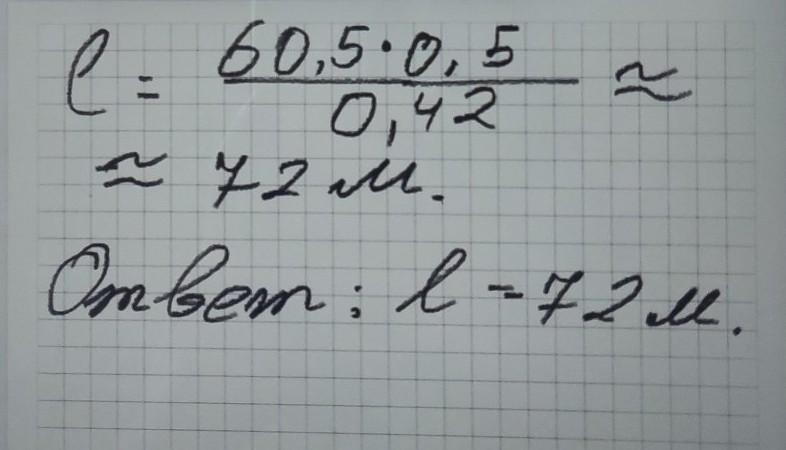 l = 60,5·0,5 / 0,42 ≈
≈ 72 м.
Ответ: l = 72 м.